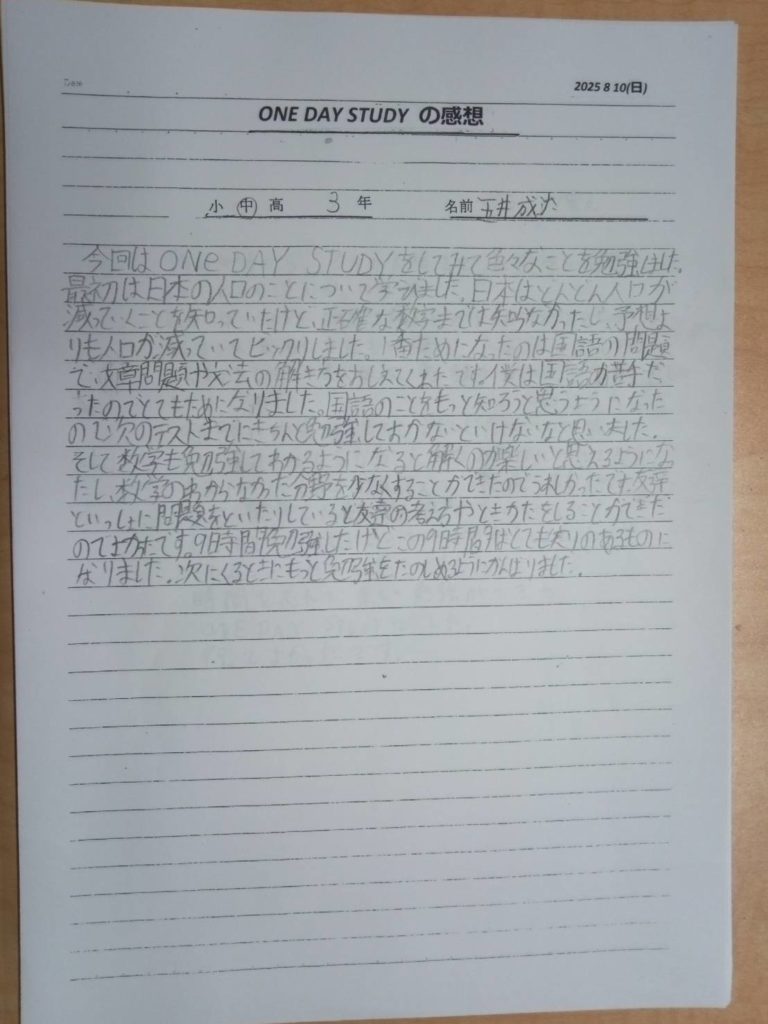 2025 8 10(日)
ONE DAY STUDY の感想
小 中 高 3 年 名前 五井成
今回は ONe DAY STUDY をしてみて色々なことを勉強しました。
最初は日本の人口のことについて学びました。日本はどんどん人口が
減っていくことを知っていたけど、正確な数字までは知らなかったし、予想よ
りも人口が減っていてビックリしました。1番ためになったのは国語の問題
で、文章問題や文法の解き方をおしえてくれたです。僕は国語が苦手だ
ったのでとてもためになりました。国語のことをもっと知ろうと思うようになった
ので次のテストまでにきちんと勉強しておかないといけないなと思いました。
そして数学も勉強してわかるようになると解くのが楽しいと思えるようにな
たし、数学のわからなかった分野を少なくすることができたのでうれしかったです。友達
といっしょに問題をといたりしていると友達の考え方やときかたをしることができた
のでよかったです。9時間勉強したけどこの9時間はとても実りのあるものに
なりました。次にくるときにもっと勉強をたのしめるようにがんばりました。